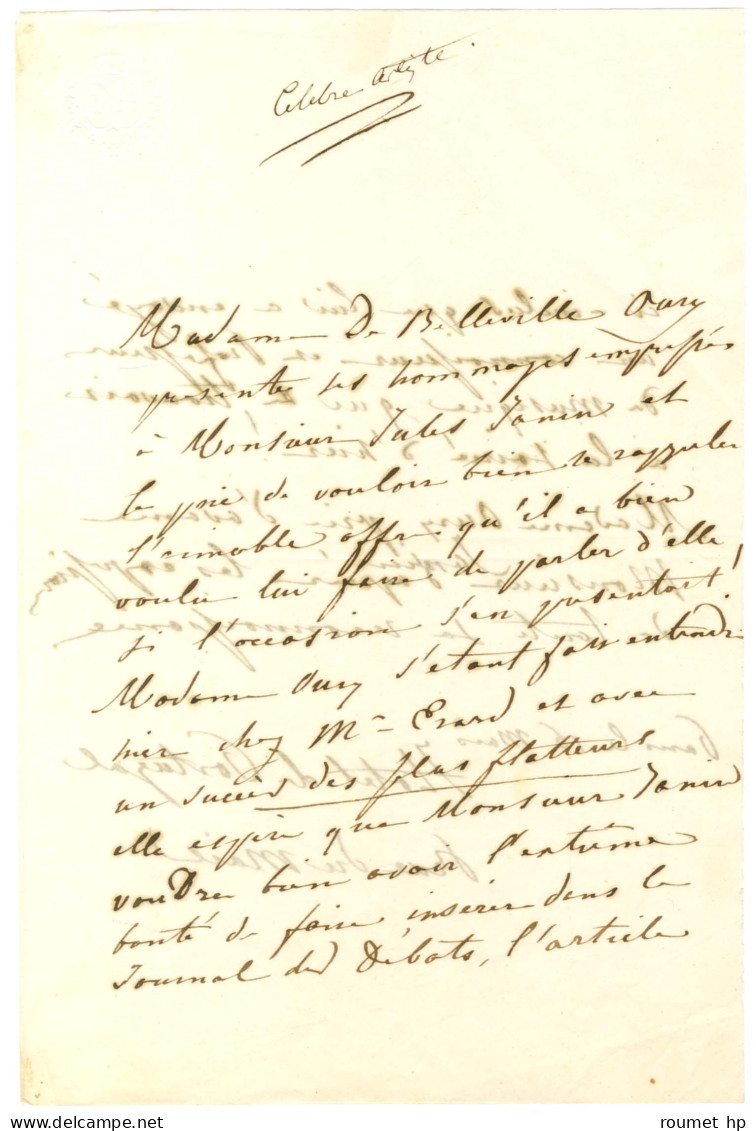 Celebre Artiste.
Madame De Belleville Oury
presente ses hommages empressés
à Monsieur Jules Janin et
le prie de vouloir bien se rappeler
l'aimable offre qu'il a bien
voulu lui faire de parler d'elle,
si l'occasion s'en presentait!
Madame Oury s'etant fait entendre
hier chez Mr Erard et avec
un succès des plus flatteurs
elle espère que Monsieur Janin
voudra bien avoir l'extrême
bonté de faire insérer dans le
Journal des Débats, l'article
roumet hp